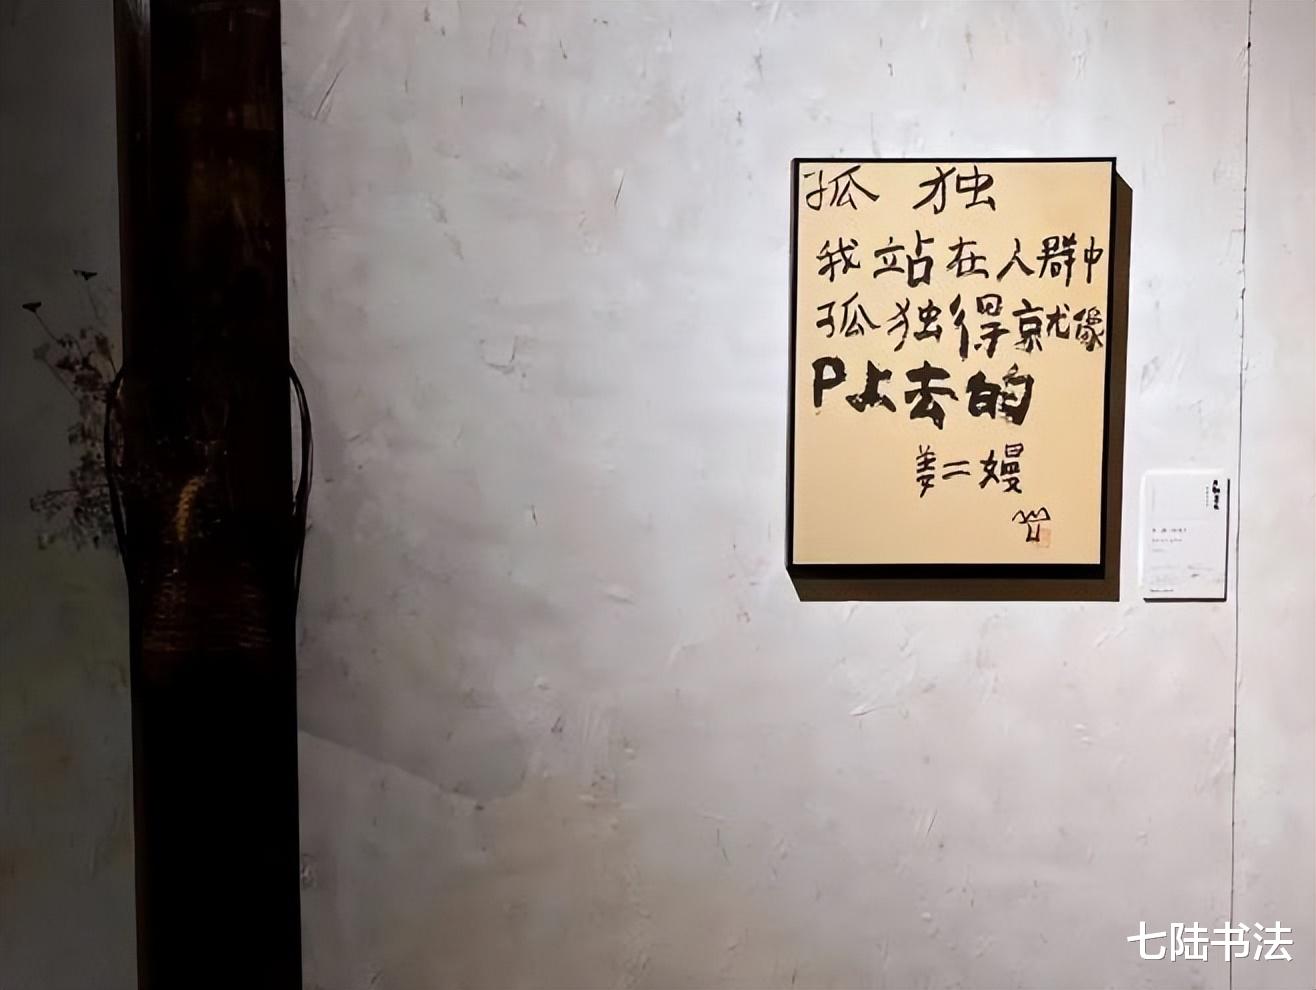 孤 独
我站在人群中
孤独得就像
P上去的
姜二嫚
七陆书法